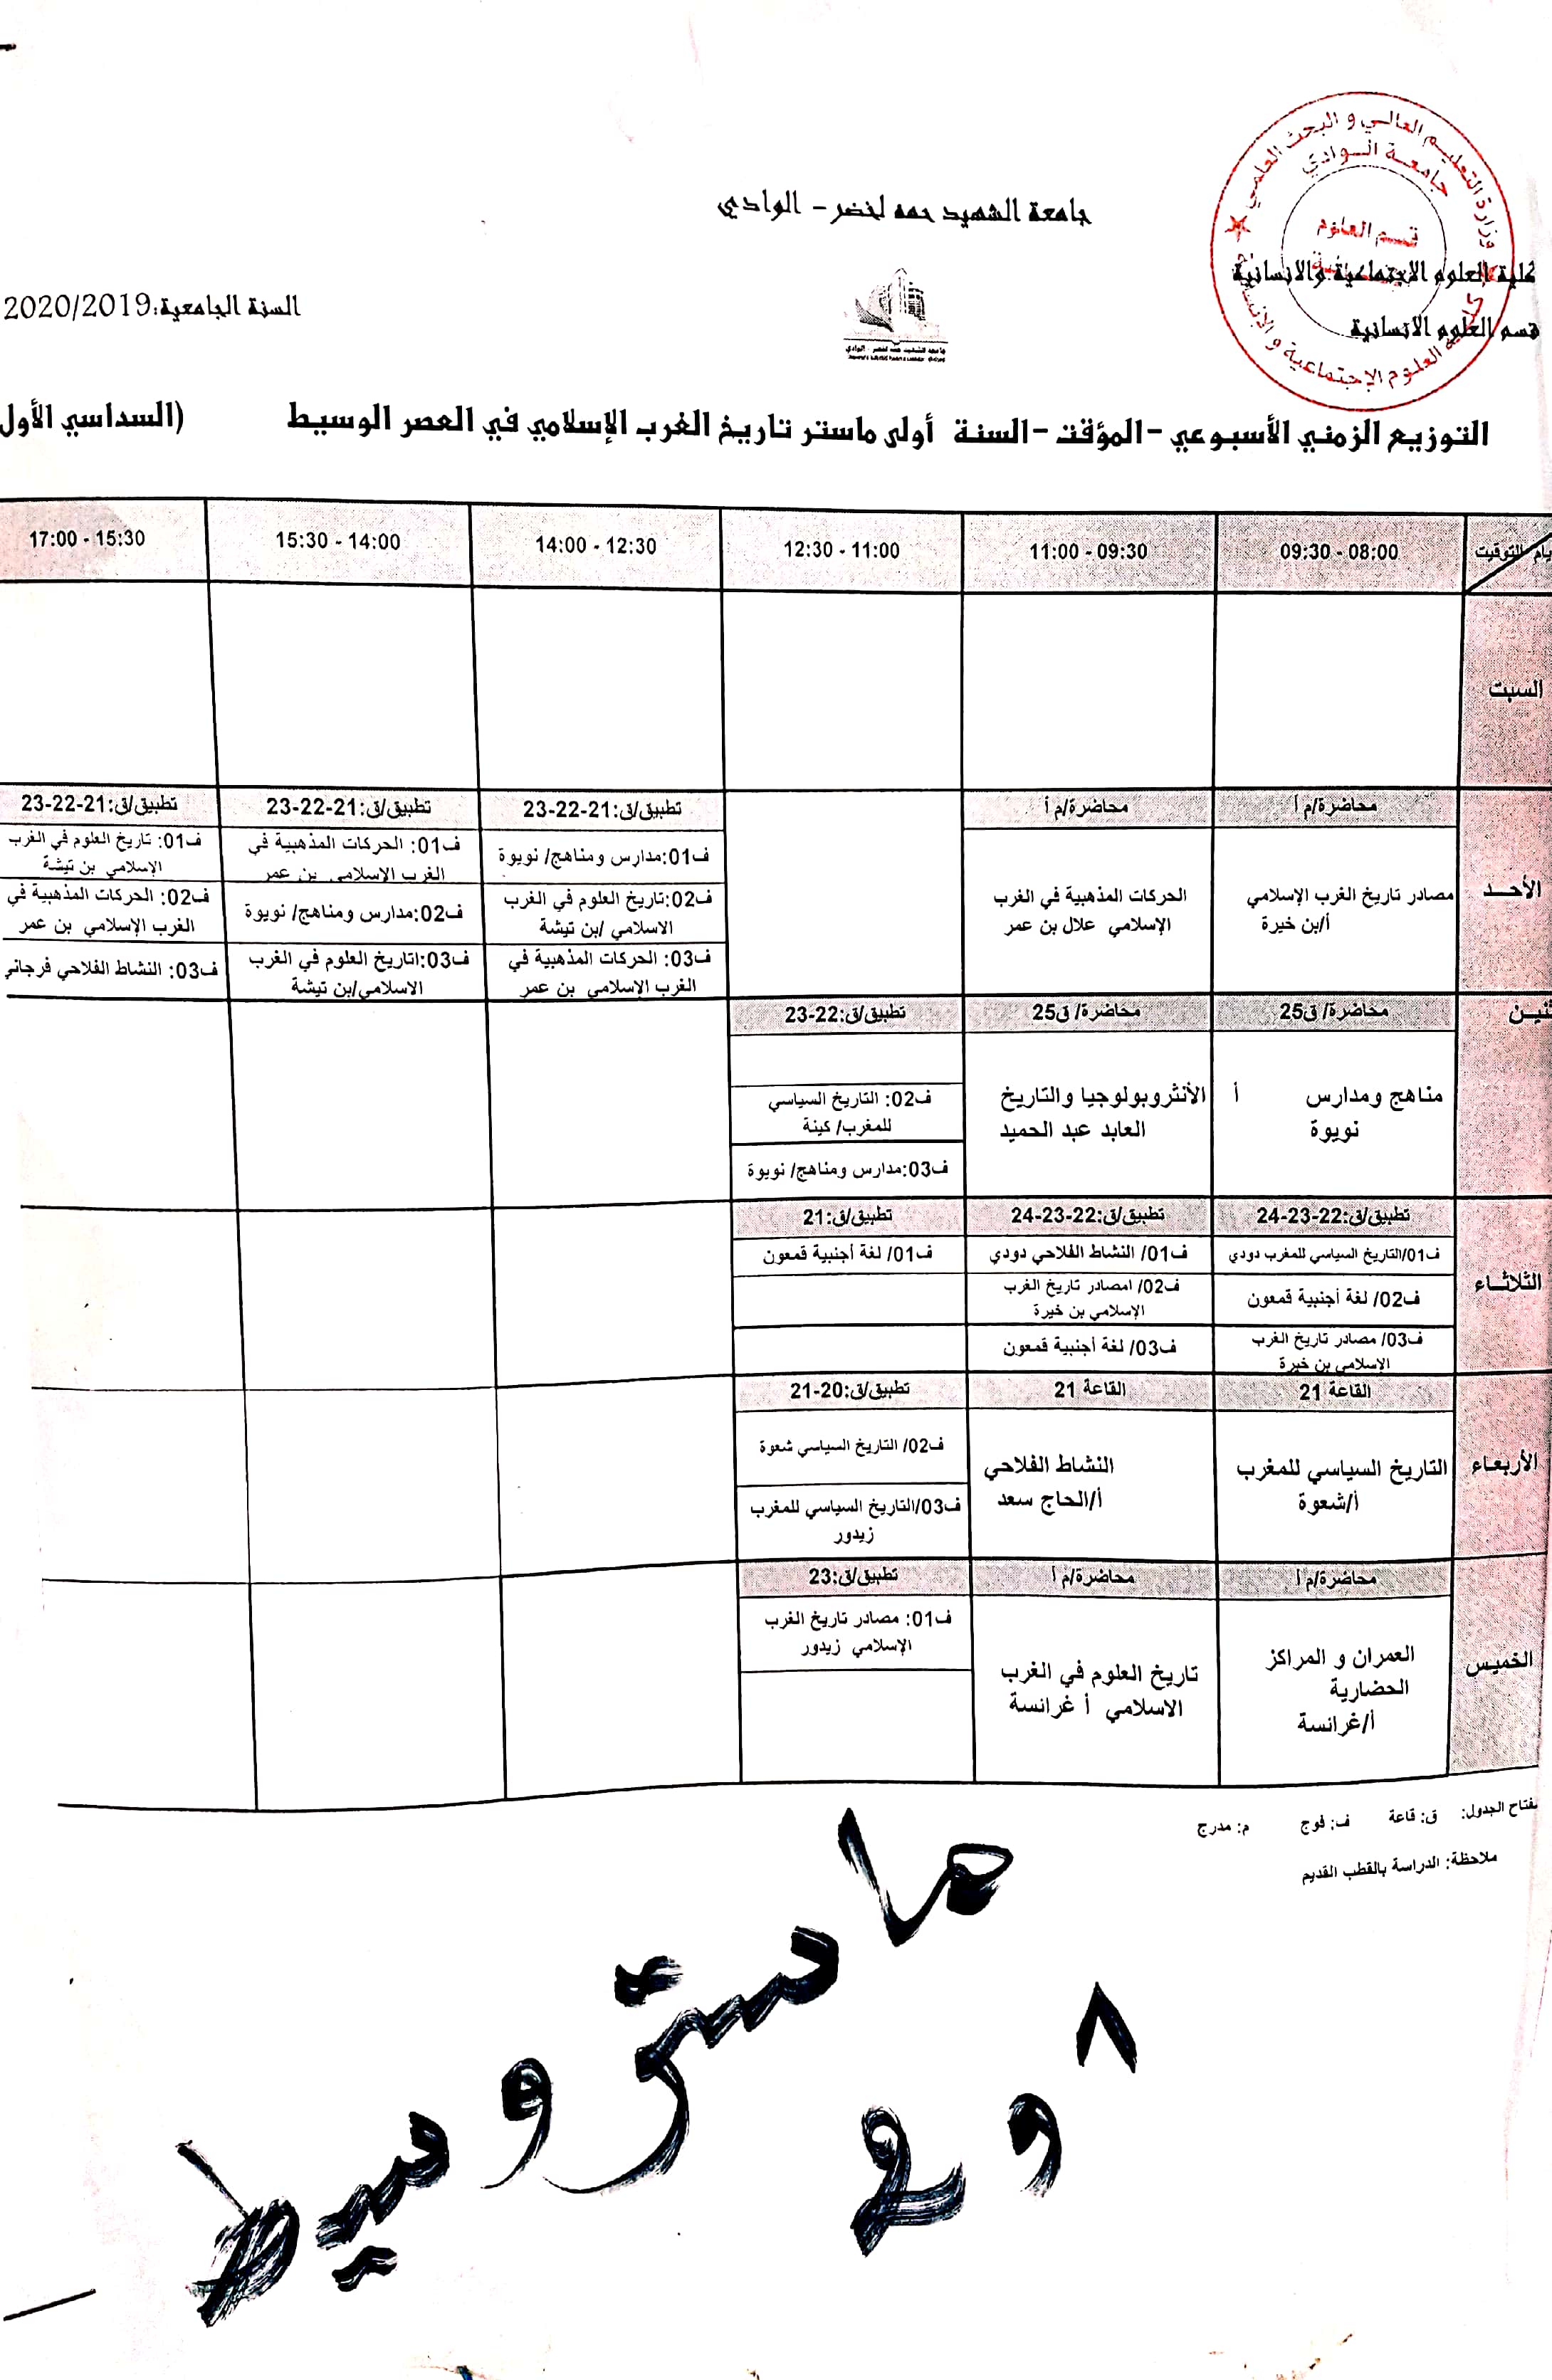 وزارة التعليم العالي و البحث العلمي
جامعة الوادي
قسم العلوم
كلية العلوم الإجتماعية و الإنسانية
جامعة الشهيد حمه لخضر - الوادي
كلية العلوم الاجتماعية والانسانية
السنة الجامعية:2020/2019
قسم العلوم الانسانية
جامعة الشهيد حمه لخضر - الوادي
التوزيع الزمني الأسبوعي -المؤقت -السنة أولى ماستر تاريخ الغرب الإسلامي في العصر الوسيط (السداسي الأول
يام التوقيت 08:00 - 09:30 09:30 - 11:00 11:00 - 12:30 12:30 - 14:00 14:00 - 15:30 15:30 - 17:00
السبت
الأحد
محاضرة/م أ
مصادر تاريخ الغرب الإسلامي
أ/بن خيرة
محاضرة/م أ
الحركات المذهبية في الغرب
الإسلامي علال بن عمر
تطبيق/ق:21-22-23
ف01:مدارس ومناهج/ نويوة
ف02:تاريخ العلوم في الغرب
الاسلامي /بن تيشة
ف03: الحركات المذهبية في
الغرب الإسلامي بن عمر
تطبيق/ق:21-22-23
ف01: الحركات المذهبية في
الغرب الإسلامي بن عمر
ف02:مدارس ومناهج/ نويوة
ف03:اتاريخ العلوم في الغرب
الاسلامي/بن تيشة
تطبيق/ق:21-22-23
ف01: تاريخ العلوم في الغرب
الإسلامي بن تيشة
ف02: الحركات المذهبية في
الغرب الإسلامي بن عمر
ف03: النشاط الفلاحي فرجاني
ثنين
محاضرة/ ق25
مناهج ومدارس أ
نويوة
محاضرة/ ق25
الأنثروبولوجيا والتاريخ
العابد عبد الحميد
تطبيق/ق:22-23
ف02: التاريخ السياسي
للمغرب/ كينة
ف03:مدارس ومناهج/ نويوة
الثلاثاء
تطبيق/ق:22-23-24
ف01/التاريخ السياسي للمغرب دودي
ف02/ لغة أجنبية قمعون
ف03/ مصادر تاريخ الغرب
الإسلامي بن خيرة
تطبيق/ق:22-23-24
ف01/ النشاط الفلاحي دودي
ف02/ امصادر تاريخ الغرب
الإسلامي بن خيرة
ف03/ لغة أجنبية قمعون
تطبيق/ق:21
ف01/ لغة أجنبية قمعون
الأربعاء
القاعة 21
التاريخ السياسي للمغرب
أ/شعوة
القاعة 21
النشاط الفلاحي
أ/الحاج سعد
تطبيق/ق:20-21
ف02/ التاريخ السياسي شعوة
ف03/التاريخ السياسي للمغرب
زيدور
الخميس
محاضرة/م أ
العمران و المراكز
الحضارية
أ/غرانسة
محاضرة/م أ
تاريخ العلوم في الغرب
الاسلامي أ غرانسة
تطبيق/ق:23
ف01: مصادر تاريخ الغرب
الإسلامي زيدور
مفتاح الجدول: ق: قاعة ف: فوج م: مدرج
ملاحظة: الدراسة بالقطب القديم
ماستر وسيط
1 و 2